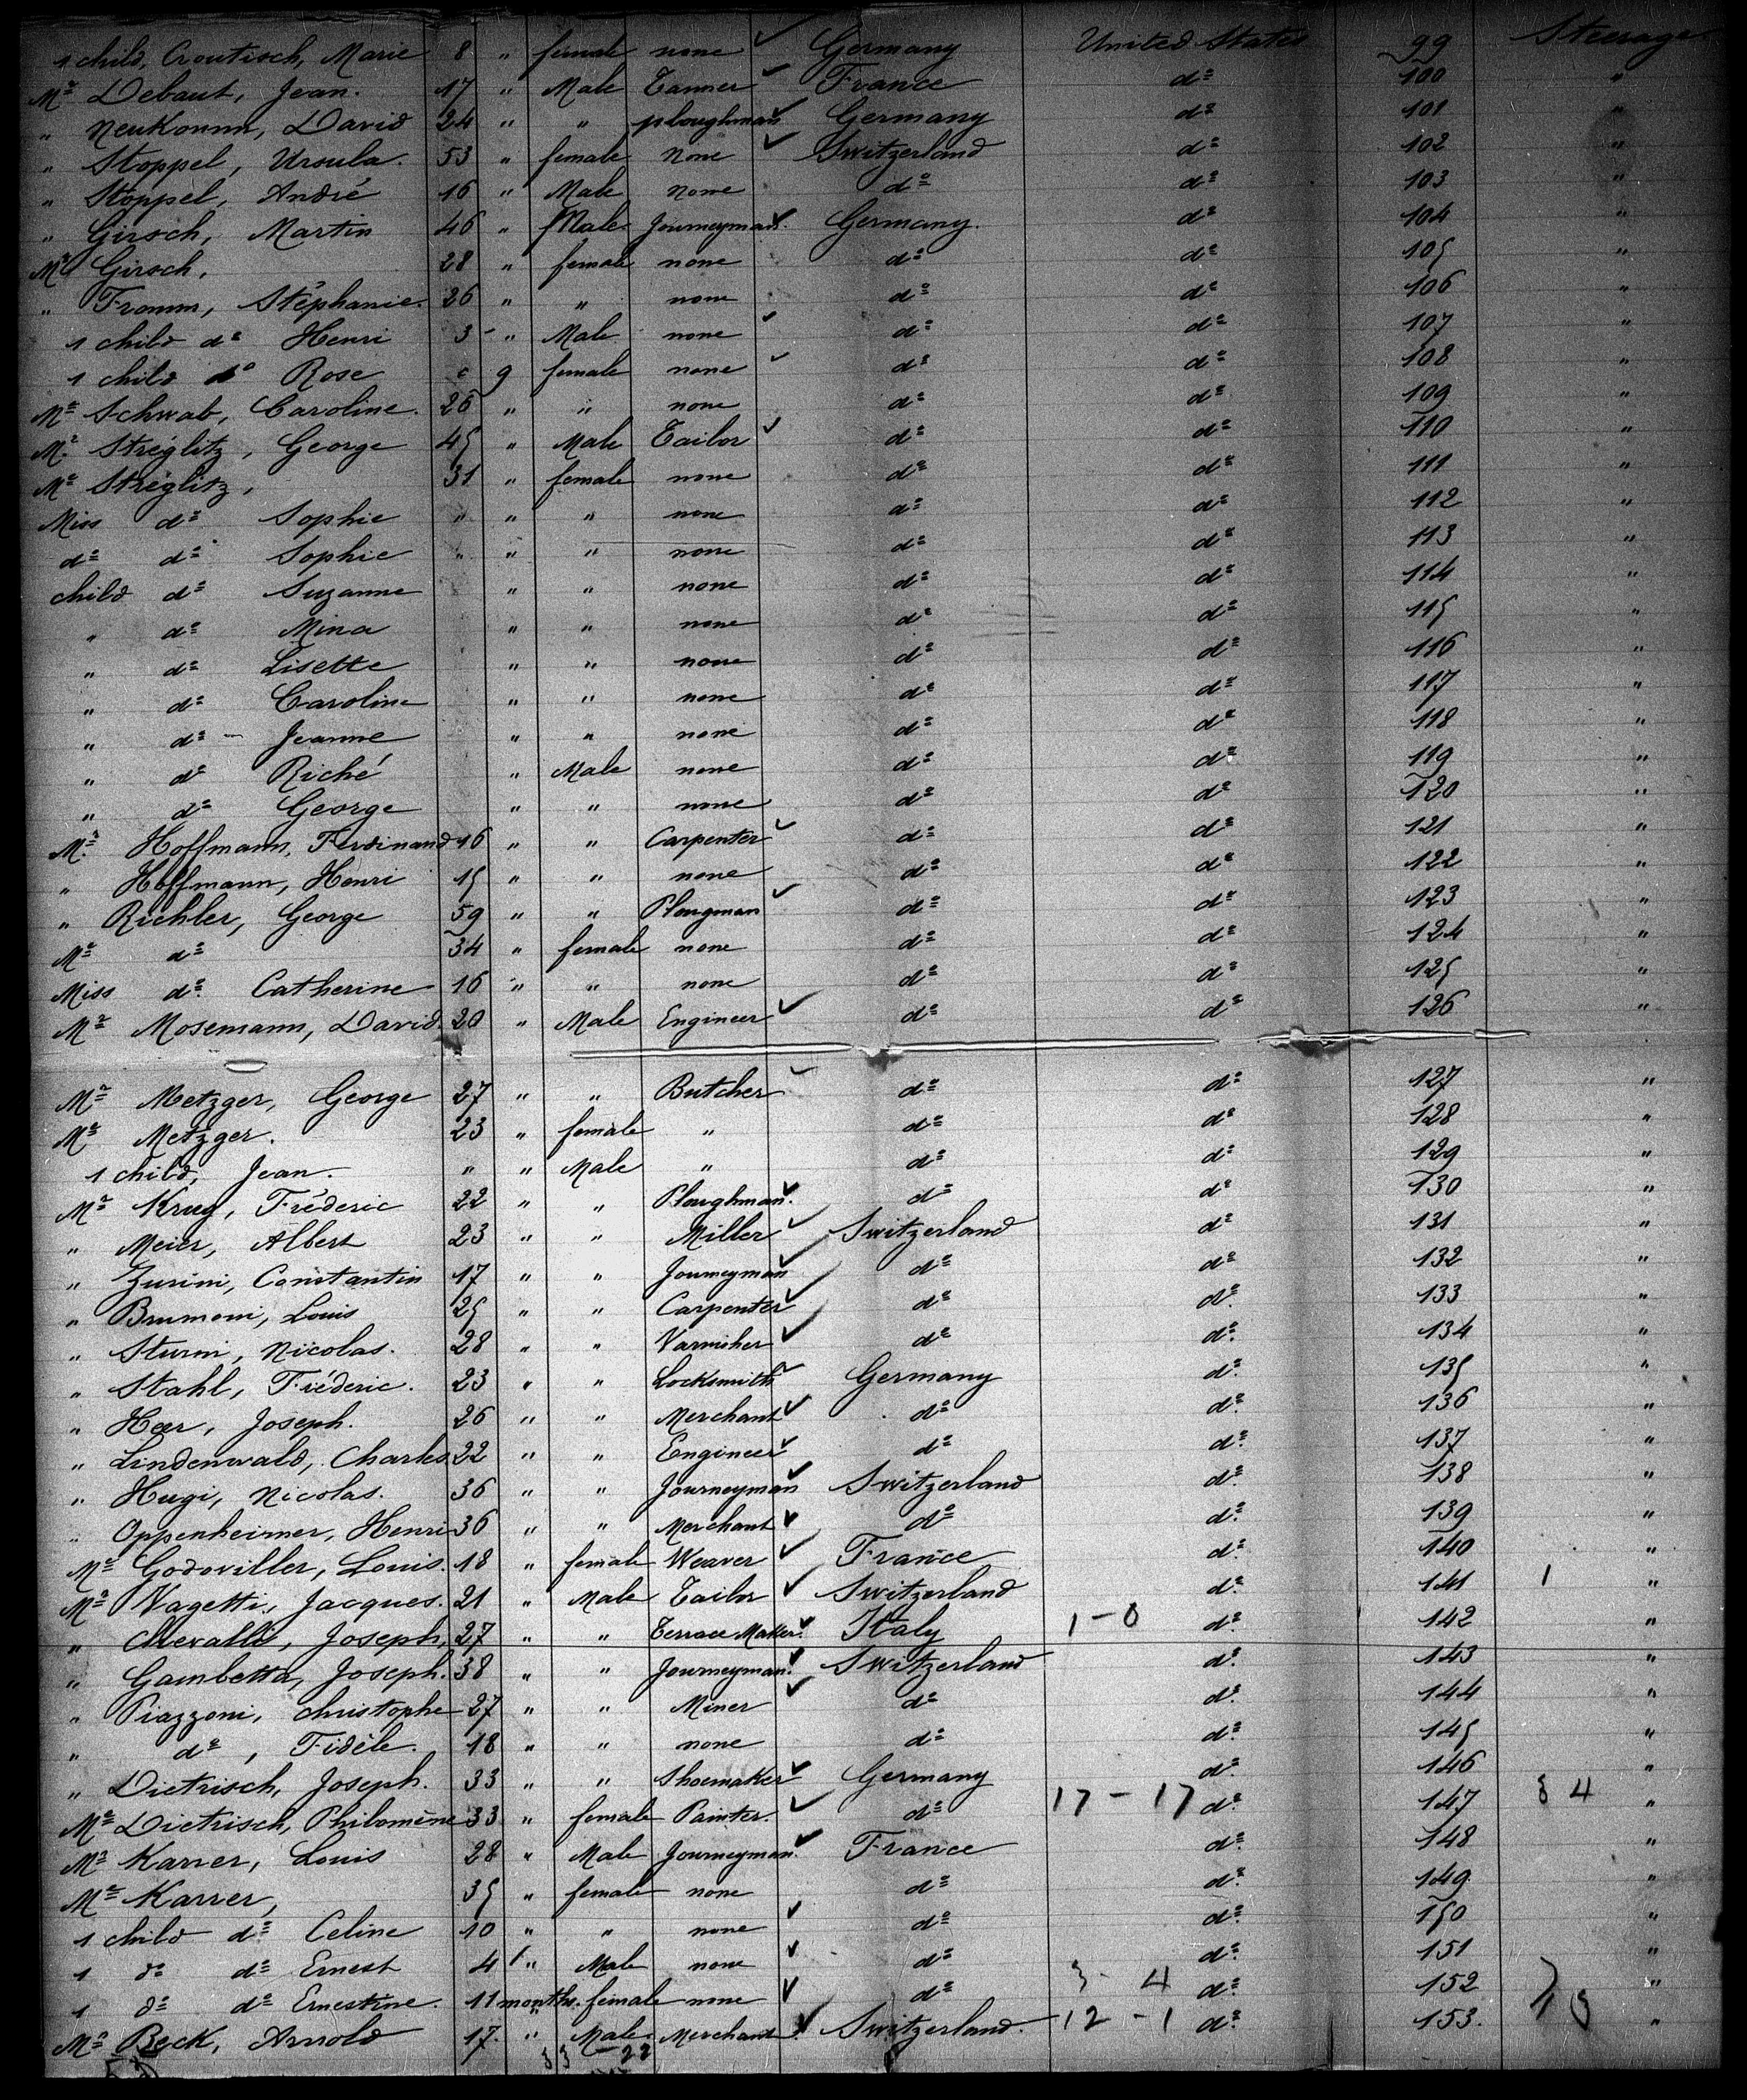 1 child, Croutisch, Marie 8 " female none ✓ Germany United States 99 Steerage
Mr Debaut, Jean. 17 " Male Tanner ✓ France do 100 "
" Neukomm, David 24 " " ploughman ✓ Germany do 101 "
" Stoppel, Ursula. 53 " female none ✓ Switzerland do 102 "
" Stoppel, André 16 " Male none do do 103 "
" Girsch, Martin 46 " Male Journeyman ✓ Germany. do 104 "
Me Girsch, 28 " female none do do 105 "
" Fromm, Stéphanie. 26 " " none do do 106 "
1 child do Henri 3 " Male none ✓ do do 107 "
1 child do Rose " 9 female none ✓ do do 108 "
Me Schwab, Caroline. 26 " " none do do 109 "
Mr Stréglitz, George 45 " Male Tailor ✓ do do 110 "
Me Stréglitz, 31 " female none do do 111 "
Miss do Sophie " " " none do do 112 "
do do Sophie " " " none do do 113 "
child do Suzanne " " none do do 114 "
" do Mina " " none do do 115 "
" do Lisette " " none do do 116 "
" do Caroline " " none do do 117 "
" do Jeanne " " none do do 118 "
" do Riché " Male none do do 119 "
" do George " " none do do 120 "
Mr Hoffmann, Ferdinand 16 " " Carpenter ✓ do do 121 "
" Hoffmann, Henri 15 " " none do do 122 "
" Richler, George 59 " " Plougman ✓ do do 123 "
Me do 34 " female none do do 124 "
Miss do Catherine 16 " " none do do 125 "
Mr Mosemann, David. 20 " Male Engineer ✓ do do 126 "
Mr Metzger, George 27 " " Butcher ✓ do do 127 "
Me Metzger. 23 " female " do do 128 "
1 child, Jean. " " Male " do do 129 "
Mr Krug, Fréderic 22 " " Ploughman. ✓ do do 130 "
" Meier, Albert 23 " " Miller ✓ Switzerland do 131 "
" Zurini, Constantin 17 " " Journeyman ✓ do do 132 "
" Brumoni, Louis 25 " " Carpenter ✓ do do 133 "
" Sturni, Nicolas. 28 " " Varnisher ✓ do do 134 "
" Stahl, Fréderic. 23 " " Locksmith ✓ Germany do 135 "
" Heer, Joseph. 26 " " Merchant ✓ do do 136 "
" Lindenwald, Charles 22 " " Engineer ✓ do do 137 "
" Hugi, Nicolas. 36 " " Journeyman ✓ Switzerland do 138 "
" Oppenheimer, Henri 36 " " Merchant ✓ do do 139 "
Me Godoviller, Louis. 18 " female Weaver ✓ France do 140 "
Mr Vagetti, Jacques. 21 " Male Tailor ✓ Switzerland do 141 1 "
" Chevalli, Joseph, 27 " " Terrace Maker. ✓ Italy 1 - 0 do 142 "
" Gambetta, Joseph. 38 " " Journeyman. ✓ Switzerland do 143 "
" Piazzoni, christophe 27 " " Miner ✓ do do 144 "
" do, Fidèle. 18 " " none do do 145 "
" Dietrisch, Joseph. 33 " " Shoemaker ✓ Germany do 146 "
Me Dietrisch, Philomène 33 " female Painter. ✓ do 17 - 17 do 147 34 "
Mr Karrer, Louis 28 " Male Journeyman. ✓ France do 148 "
Me Karrer, 35 " female none do do 149 "
1 child do Celine 10 " " none ✓ do do 150 "
1 do do Ernest 4 " Male none ✓ do do 151 "
1 do do Ernestine. 11 months. female none ✓ do 3 - 4 do 152 "
Mr Beck, Arnold 17. " Male. Merchant ✓ Switzerland. 12 - 1 do 153. "
33 - 22